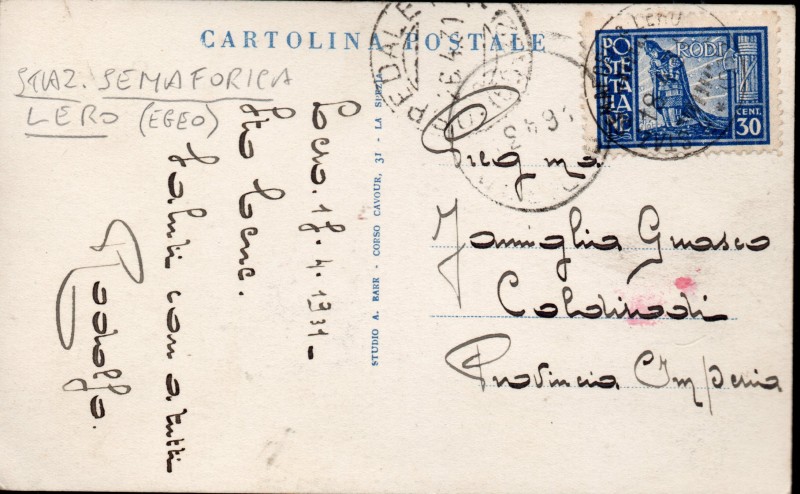 CARTOLINA POSTALE
STAZ. SEMAFORICA
LERO (EGEO)
Lero. 18. 4. 1931 -
Sto bene.
Saluti cari a tutti
Rodolfo.
STUDIO A. BARR - CORSO CAVOUR, 31 - LA SPEZIA
POSTE ITALIANE
RODI
CENT.
30
Preg ma
Famiglia Guasco
Coldirodi
Provincia Imperia